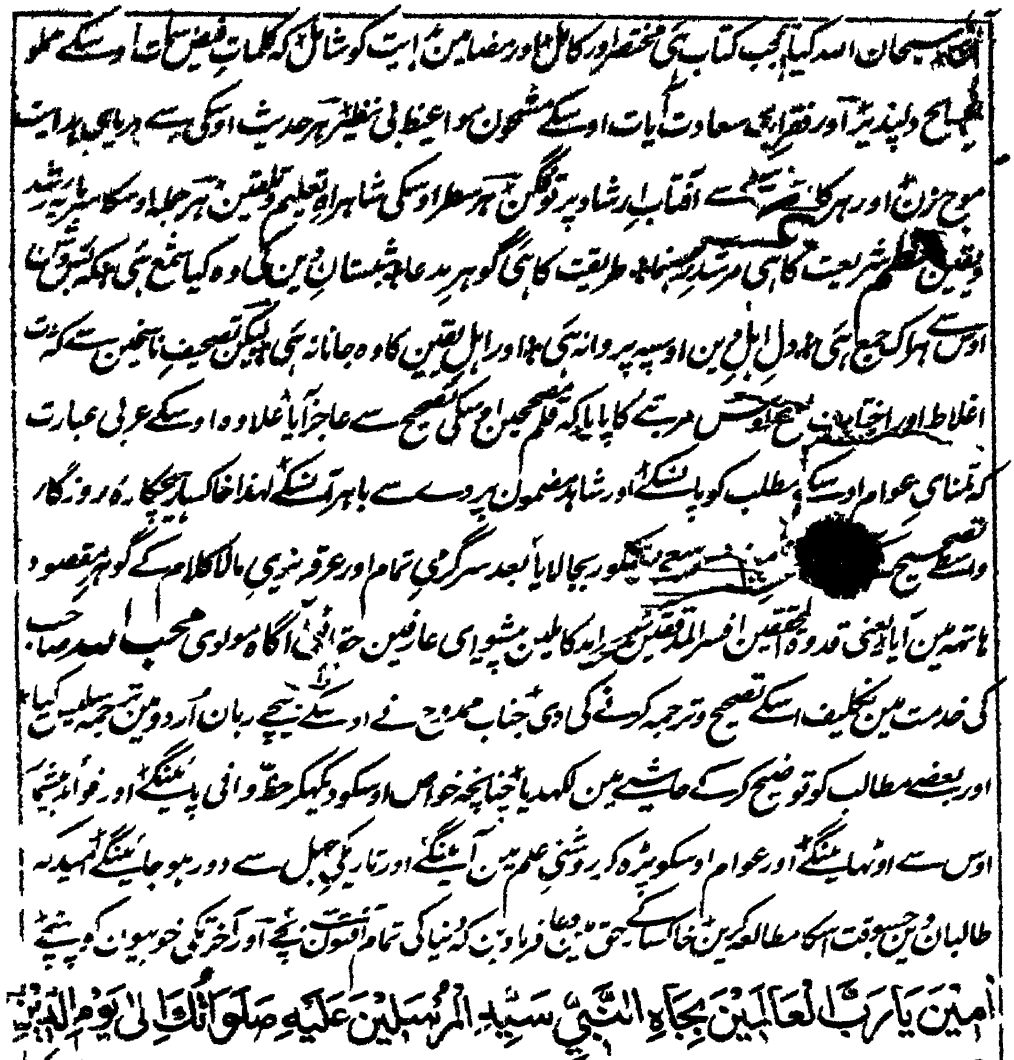 سبحان اللہ کیا عجب کتاب ہی مختصر اور کامل اور مضامین ہدایت کو شامل کہ کلمات فیض سمات اوسکے مملو
دلپذیر اور فقرات سعادت آیات اوسکے مشحون مواعظ بی نظیر ہر حدیث اوسکی ہے دریای ہدایت
موج زن اور ہر کلمہ سے آفتاب ارشاد پرتو فگن ہر سطر اوسکی شاہراہ تعلیم و تلقین ہر جملہ اوسکا سر پا رشد
و یقین شریعت کا ہی مرشد رہنما طریقت کا ہی گوہر مدعا شبستان دین کی وہ کیا شمع ہی کہ
اوس سے ہر اک جمع ہی دل اہل دین اوسپہ پروانہ ہی اور اہل یقین کا وہ جانانہ ہی لیکن تصحیف ناسخین سے کثرت
اغلاط اور اختلاف نسخ اوس مرتبے کا پایا کہ قلم مصححین اج اسکی تصحیح سے عاجز آیا علاوہ اوسکے عربی عبارت
کہ تمنای عوام اوسکے مطلب کو پا نسکے اور شاہد مضمون پردے سے باہر آ نسکے لہذا خاکسار ہیچکارہ روزگار
واسطے تصحیح کے سعی بجا لایا بعد سرگرمی تمام اور عرقریزی مالا کلام کے گوہر مقصود
ہاتھ مین آیا یعنی قدوۃ المحققین افسر المدققین کاملین پیشوای عارفین حقائق آگاہ مولوی محب اللہ صاحب
کی خدمت مین تکلیف اسکے تصحیح و ترجمہ کرنے کی دی جناب ممدوح نے اوسکے نیچے زبان اردو مین ترجمہ سلیس کیا
اور بعضے مطالب کو توضیح کرکے حاشیے مین لکھدیا چنانچہ خواص اوسکو دیکھکر حظ وافی پائینگے اور فوائد بیشمار
اوس سے اوٹھائینگے اور عوام اوسکو پڑہ کر روشنی علم مین آئینگے اور تاریکی جہل سے دور ہو جائینگے امید کہ
طالبان دین جسوقت اسکا مطالعہ کرین خاکسار کے حق مین دعا فرماوین کہ دنیا کی تمام آفتون سے بچے اور آخرت کی خوبیون کو پہنچے
اٰمِیْنَ یَا رَبَّ الْعَالَمِیْنَ بِجَاہِ النَّبِیِّ سَیِّدِ الْمُرْسَلِیْنَ عَلَیْہِ صَلَوَاتُكَ اِلٰی یَوْمِ الدِّیْنِ